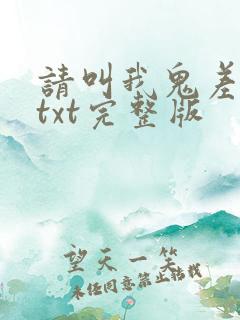 請叫我鬼差
txt完整版
望天一笑
未经同意禁止转载